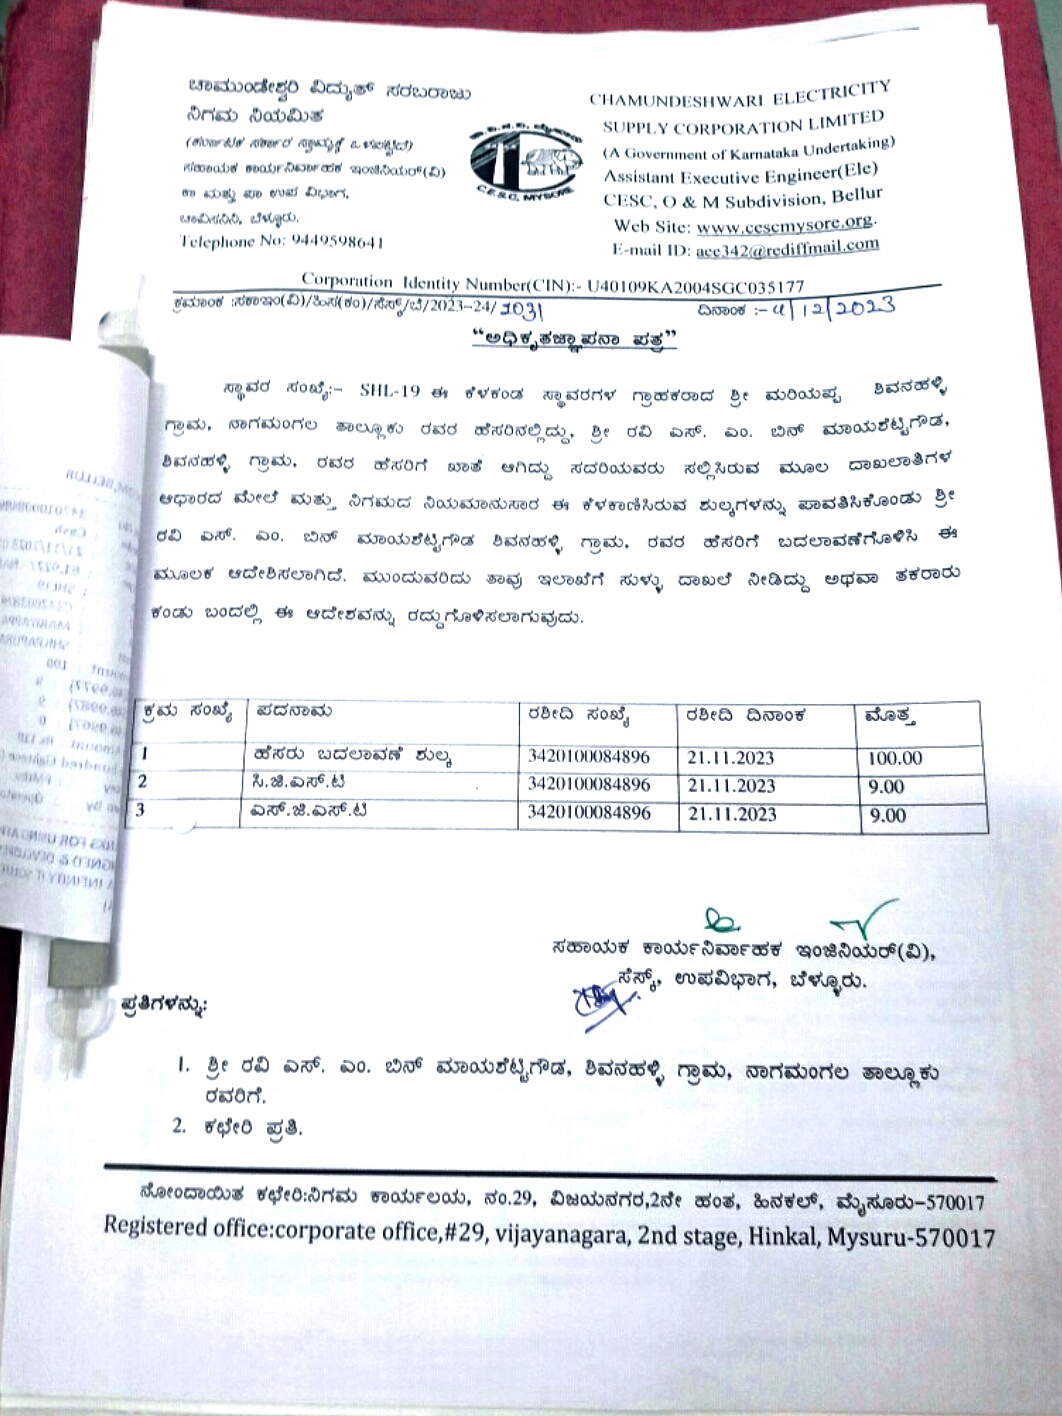 ಚಾಮುಂಡೇಶ್ವರಿ ವಿದ್ಯುತ್ ಸರಬರಾಜು
ನಿಗಮ ನಿಯಮಿತ
(ಕರ್ನಾಟಕ ಸರ್ಕಾರ ಸ್ವಾಮ್ಯಕ್ಕೆ ಒಳಪಟ್ಟಿದೆ)
ಸಹಾಯಕ ಕಾರ್ಯನಿರ್ವಾಹಕ ಇಂಜಿನಿಯರ್(ವಿ)
ಕಾ ಮತ್ತು ಪಾ ಉಪ ವಿಭಾಗ,
ಚಾವಿಸನಿನಿ, ಬೆಳ್ಳೂರು.
Telephone No: 9449598641
C.E.S.C, MYSORE
CHAMUNDESHWARI ELECTRICITY
SUPPLY CORPORATION LIMITED
(A Government of Karnataka Undertaking)
Assistant Executive Engineer(Ele)
CESC, O & M Subdivision, Bellur
Web Site: www.cescmysore.org.
E-mail ID: aee342@rediffmail.com
Corporation Identity Number(CIN):- U40109KA2004SGC035177
ಕ್ರಮಾಂಕ :ಸಕಾಇಂ(ವಿ)/ಹಿಸ(ಕಂ)/ಸೆಸ್ಕ್/ಬೆ/2023-24/ 2031
ದಿನಾಂಕ :- 4/12/2023
“ಅಧಿಕೃತಜ್ಞಾಪನಾ ಪತ್ರ”
ಸ್ಥಾವರ ಸಂಖ್ಯೆ:- SHL-19 ಈ ಕೆಳಕಂಡ ಸ್ಥಾವರಗಳ ಗ್ರಾಹಕರಾದ ಶ್ರೀ ಮರಿಯಪ್ಪ ಶಿವನಹಳ್ಳಿ
ಗ್ರಾಮ, ನಾಗಮಂಗಲ ತಾಲ್ಲೂಕು ರವರ ಹೆಸರಿನಲ್ಲಿದ್ದು, ಶ್ರೀ ರವಿ ಎಸ್. ಎಂ. ಬಿನ್ ಮಾಯಶೆಟ್ಟಿಗೌಡ,
ಶಿವನಹಳ್ಳಿ ಗ್ರಾಮ, ರವರ ಹೆಸರಿಗೆ ಖಾತೆ ಆಗಿದ್ದು ಸದರಿಯವರು ಸಲ್ಲಿಸಿರುವ ಮೂಲ ದಾಖಲಾತಿಗಳ
ಆಧಾರದ ಮೇಲೆ ಮತ್ತು ನಿಗಮದ ನಿಯಮಾನುಸಾರ ಈ ಕೆಳಕಾಣಿಸಿರುವ ಶುಲ್ಕಗಳನ್ನು ಪಾವತಿಸಿಕೊಂಡು ಶ್ರೀ
ರವಿ ಎಸ್. ಎಂ. ಬಿನ್ ಮಾಯಶೆಟ್ಟಿಗೌಡ ಶಿವನಹಳ್ಳಿ ಗ್ರಾಮ, ರವರ ಹೆಸರಿಗೆ ಬದಲಾವಣೆಗೊಳಿಸಿ ಈ
ಮೂಲಕ ಆದೇಶಿಸಲಾಗಿದೆ. ಮುಂದುವರಿದು ತಾವು ಇಲಾಖೆಗೆ ಸುಳ್ಳು ದಾಖಲೆ ನೀಡಿದ್ದು ಅಥವಾ ತಕರಾರು
ಕಂಡು ಬಂದಲ್ಲಿ ಈ ಆದೇಶವನ್ನು ರದ್ದುಗೊಳಿಸಲಾಗುವುದು.
ಕ್ರಮ ಸಂಖ್ಯೆ ಪದನಾಮ ರಶೀದಿ ಸಂಖ್ಯೆ ರಶೀದಿ ದಿನಾಂಕ ಮೊತ್ತ
1 ಹೆಸರು ಬದಲಾವಣೆ ಶುಲ್ಕ 3420100084896 21.11.2023 100.00
2 ಸಿ.ಜಿ.ಎಸ್.ಟಿ 3420100084896 21.11.2023 9.00
3 ಎಸ್.ಜಿ.ಎಸ್.ಟಿ 3420100084896 21.11.2023 9.00
ಸಹಾಯಕ ಕಾರ್ಯನಿರ್ವಾಹಕ ಇಂಜಿನಿಯರ್(ವಿ),
ಸೆಸ್ಕ್, ಉಪವಿಭಾಗ, ಬೆಳ್ಳೂರು.
ಪ್ರತಿಗಳನ್ನು:
1. ಶ್ರೀ ರವಿ ಎಸ್. ಎಂ. ಬಿನ್ ಮಾಯಶೆಟ್ಟಿಗೌಡ, ಶಿವನಹಳ್ಳಿ ಗ್ರಾಮ, ನಾಗಮಂಗಲ ತಾಲ್ಲೂಕು
ರವರಿಗೆ.
2. ಕಛೇರಿ ಪ್ರತಿ.
ನೋಂದಾಯಿತ ಕಛೇರಿ:ನಿಗಮ ಕಾರ್ಯಲಯ, ನಂ.29, ವಿಜಯನಗರ,2ನೇ ಹಂತ, ಹಿನಕಲ್, ಮೈಸೂರು-570017
Registered office:corporate office,#29, vijayanagara, 2nd stage, Hinkal, Mysuru-570017